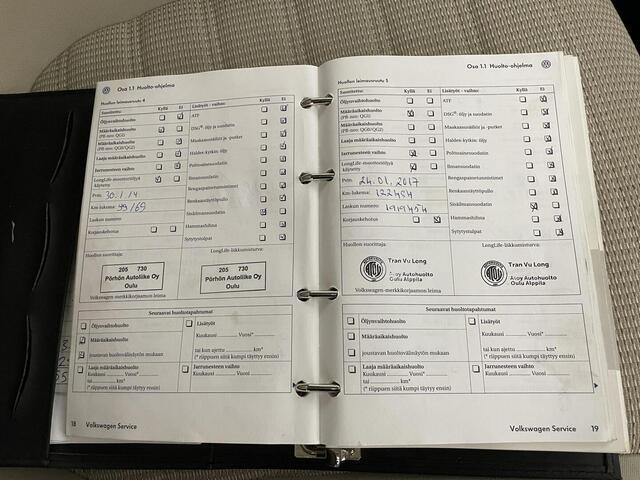 Osa 1.1 Huolto-ohjelma
Huollon leimasivusto 4
Suoritettu: Kyllä Ei Lisätyöt - vaihto: Kyllä Ei
Öljynvaihtohuolto
ATF
Määräaikaishuolto
(PR-nro: QG1)
DSG®: öljy ja suodatin
Määräaikaishuolto
(PR-nro: QG0/QG2)
Moottorinsäätöt ja -putket
Laaja määräaikaishuolto
Haldex-kytkin: öljy
Jarrunesteen vaihto
Polttoainesuodatin
LongLife-moottoriöljyä
käytetty
Ilmansuodatin
Pvm: 30.1.14
Rengaspaketunnistimet
Km-lukema:
Renkaantäyttöpullo
Laskun numero
Sisäilmansuodatin
Korjauskehotus
Hammashihna
Sytytystulpat
Huollon suorittaja:
LongLife-liikkumisturva:
205 730
Pörhön Autoliike Oy
Oulu
205 730
Pörhön Autoliike Oy
Oulu
Volkswagen-merkkikorjaamon leima
Seuraavat huoltotapahtumat
Öljynvaihtohuolto
Lisätyöt
Määräaikaishuolto
Kuukausi Vuosi*
joustavan huoltovälinäytön mukaan
tai kun ajettu km*
(* riippuen siitä kumpi täyttyy ensin)
Laaja määräaikaishuolto
Kuukausi Vuosi*
tai km*
(* riippuen siitä kumpi täyttyy ensin)
Jarrunesteen vaihto
Kuukausi Vuosi
18 Volkswagen Service
Osa 1.1 Huolto-ohjelma
Suoritettu: Kyllä Ei Lisätyöt - vaihto: Kyllä Ei
Öljynvaihtohuolto
ATF
Määräaikaishuolto
(PR-nro: QG1)
DSG®: öljy ja suodatin
Määräaikaishuolto
(PR-nro: QG0/QG2)
Laaja määräaikaishuolto
Haldex-kytkin: öljy
Jarrunesteen vaihto
Polttoainesuodatin
LongLife-moottoriöljyä
käytetty
Ilmansuodatin
Pvm: 24.01.2017
Km-lukema: 122484
Renkaantäyttöpullo
Laskun numero
Sisäilmansuodatin
Korjauskehotus
Hammashihna
Sytytystulpat
Huollon suorittaja:
LongLife-liikkumisturva:
Tran Vu Long
Autohuolto
Oulu Alppila
Tran Vu Long
Autohuolto
Oulu Alppila
Volkswagen-merkkikorjaamon leima
Seuraavat huoltotapahtumat
Öljynvaihtohuolto
Lisätyöt
Määräaikaishuolto
Kuukausi Vuosi*
joustavan huoltovälinäytön mukaan
tai kun ajettu km*
(* riippuen siitä kumpi täyttyy ensin)
Laaja määräaikaishuolto
Kuukausi Vuosi*
tai km*
(* riippuen siitä kumpi täyttyy ensin)
Jarrunesteen vaihto
Kuukausi Vuosi
Volkswagen Service 19